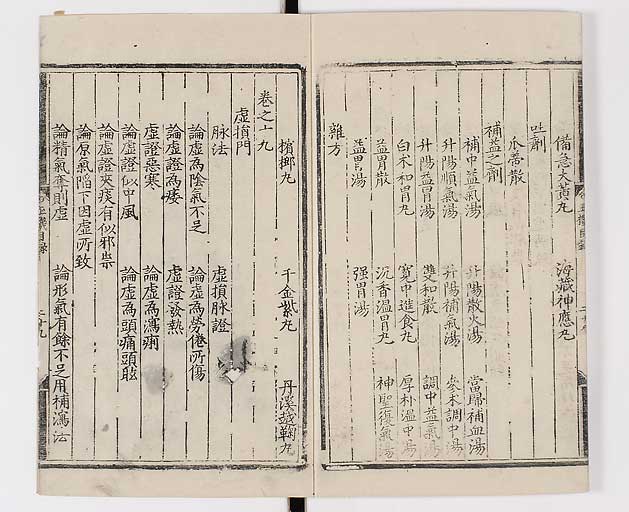 備急大黃丸　海藏神應丸
吐劑
瓜蒂散
補益之劑
補中益氣湯　升陽散火湯　當歸補血湯
升陽順氣湯　升陽補氣湯　參朮調中湯
升陽益胃湯　雙和散　調中益氣湯
白朮和胃丸　寬中進食丸　厚朴溫中湯
益胃散　沉香溫胃丸　神聖復氣湯
益胃湯　強胃湯
雜方
檳榔丸　千金紫丸　丹溪越鞠丸
卷之十九
虛損門
脉法　虛損脉證
論虛為陰氣不足　論虛為勞倦所傷
論虛證為痿　虛證發熱
虛證惡寒　論虛為瀉痢
論虛證似中風　論虛為頭痛頭眩
論虛證夾痰有似邪祟
論原氣陷下因虛所致
論精氣奪則虛　論形氣有餘不足用補瀉法
目錄
二十九